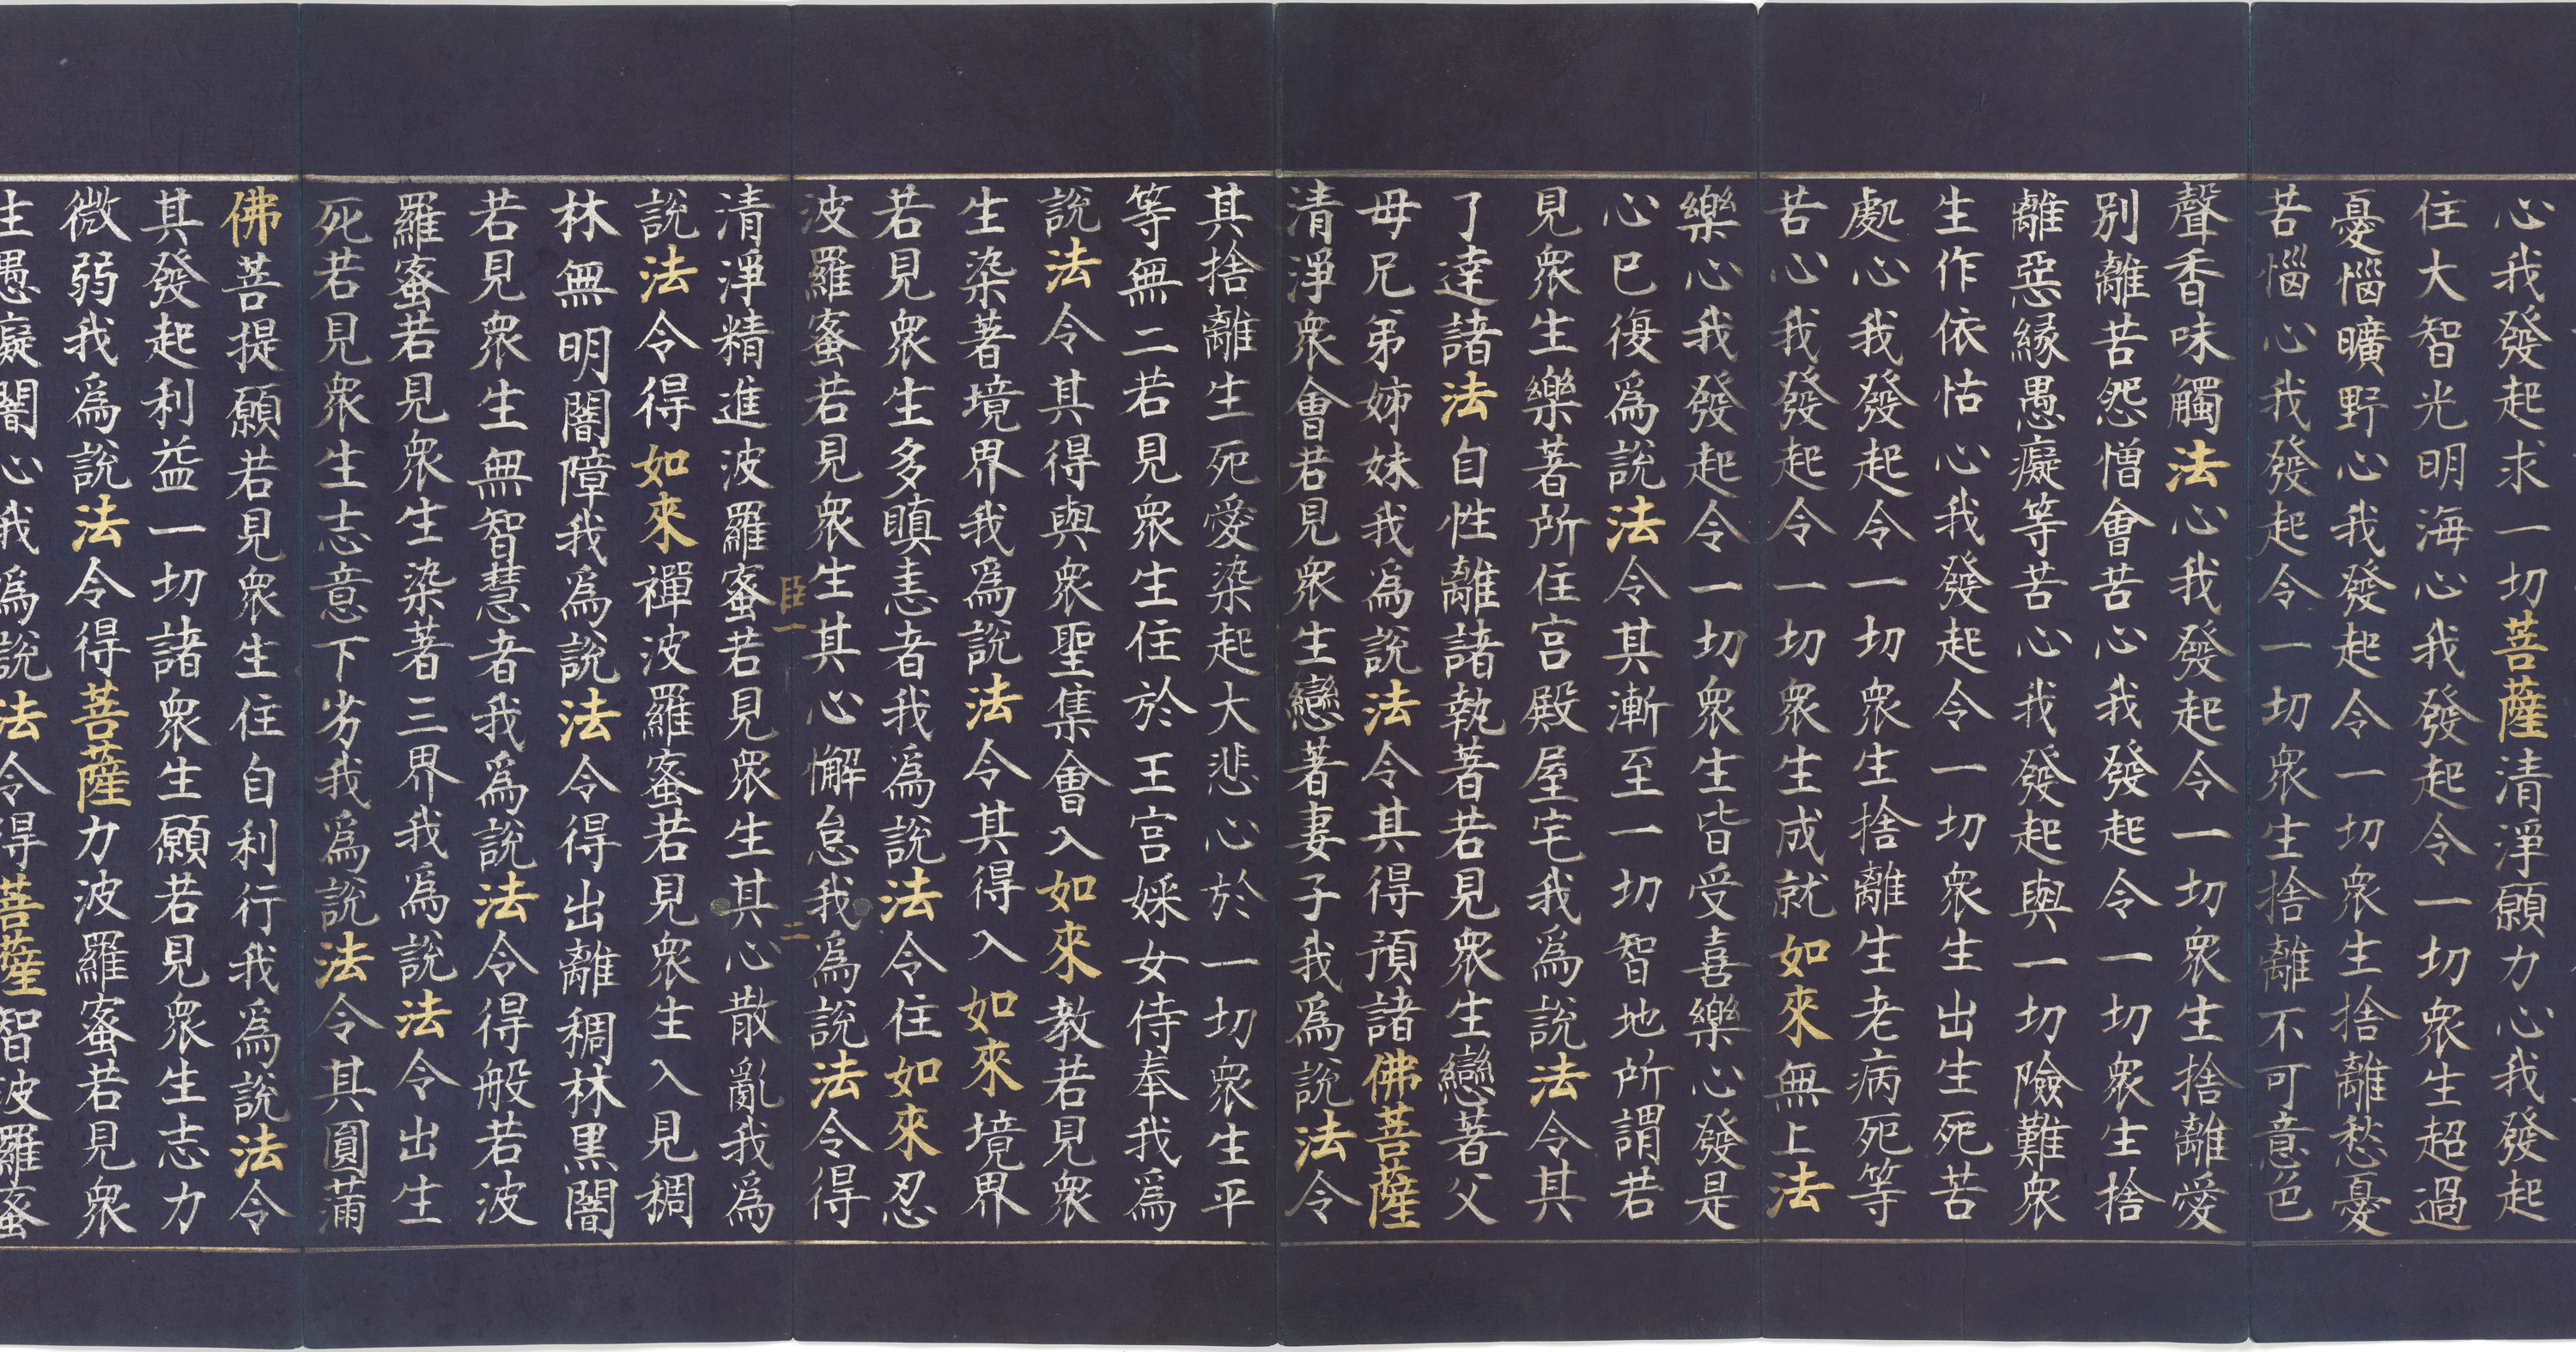 心我發起求一切菩薩清淨願力心我發起
住大智光明海心我發起令一切衆生超過
憂惱曠野心我發起令一切衆生捨離愁憂
苦惱心我發起令一切衆生捨離不可意色
聲香味觸法心我發起令一切衆生捨離愛
別離苦怨憎會苦心我發起令一切衆生捨
離惡縁愚癡等苦心我發起與一切險難衆
生作依怙心我發起令一切衆生出生死苦
處心我發起令一切衆生捨離生老病死等
苦心我發起令一切衆生成就如來無上法
樂心我發起令一切衆生皆受喜樂心發是
心已復爲說法令其漸至一切智地所謂若
見衆生樂著所住宮殿屋宅我爲說法令其
了達諸法自性離諸執著若見衆生戀著父
母兄弟姊妹我爲說法令其得預諸佛菩薩
清淨衆會若見衆生戀著妻子我爲說法令
其捨離生死愛染起大悲心於一切衆生平
等無二若見衆生住於王宮婇女侍奉我爲
說法令其得與衆聖集會入如來教若見衆
生染著境界我爲說法令其得入如來境界
若見衆生多瞋恚者我爲說法令住如來忍
波羅蜜若見衆生其心懈怠我爲說法令得
臣一 二
清淨精進波羅蜜若見衆生其心散亂我爲
說法令得如來禪波羅蜜若見衆生入見稠
林無明闇障我爲說法令得出離稠林黑闇
若見衆生無智慧者我爲說法令得般若波
羅蜜若見衆生染著三界我爲說法令出生
死若見衆生志意下劣我爲說法令其圓滿
佛菩提願若見衆生住自利行我爲說法令
其發起利益一切諸衆生願若見衆生志力
微弱我爲說法令得菩薩力波羅蜜若見衆
生愚癡闇心我爲說法令得菩薩智波羅蜜